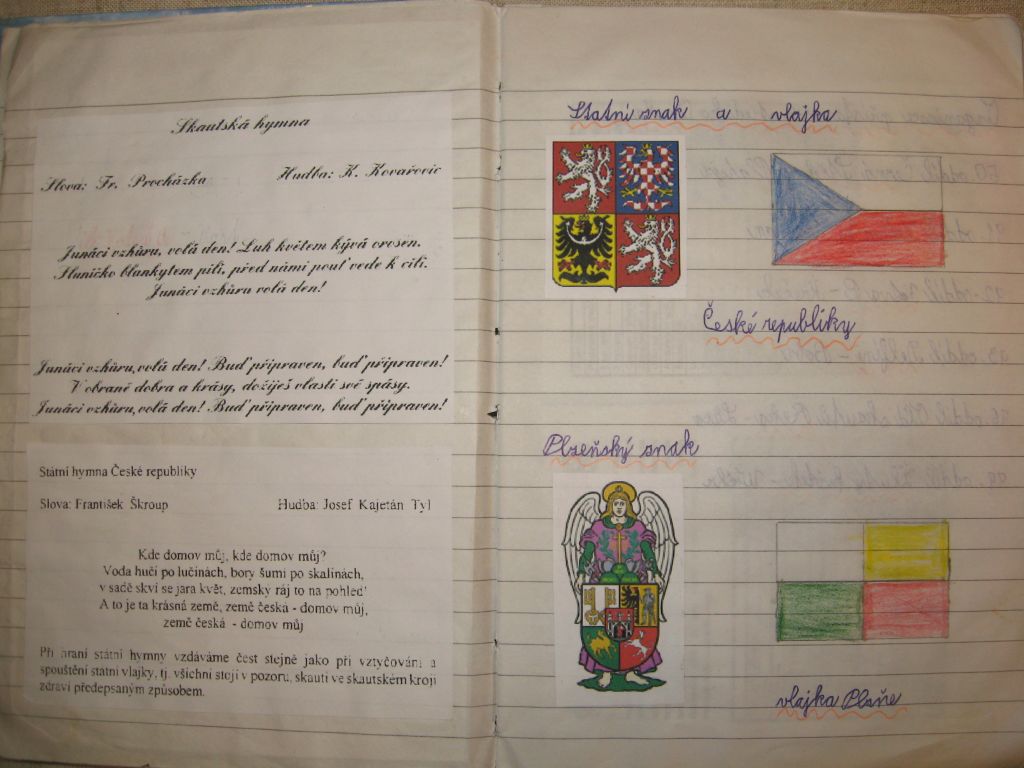 Skautská hymna
Slova: Fr. Procházka Hudba: K. Kovařovic
Junáci vzhůru, volá den! Luh květem kývá orosen.
Sluníčko blankytem pílí, před námi pouť vede k cíli.
Junáci vzhůru volá den!
Junáci vzhůru, volá den! Buď připraven, buď připraven!
V obraně dobra a krásy, dožiješ vlasti své spásy.
Junáci vzhůru, volá den! Buď připraven, buď připraven!
Státní hymna České republiky
Slova: František Škroup Hudba: Josef Kajetán Tyl
Kde domov můj, kde domov můj?
Voda hučí po lučinách, bory šumí po skalinách,
v sadě skví se jara květ, zemský ráj to na pohled!
A to je ta krásná země, země česká - domov můj,
země česká - domov můj
Při hraní státní hymny vzdáváme čest stejně jako při vztyčování a
spouštění státní vlajky, tj. všichni stojí v pozoru, skauti ve skautském kroji
zdraví předepsaným způsobem.
Statní znak a vlajka
České republiky
Plzeňský znak
vlajka Plzňe